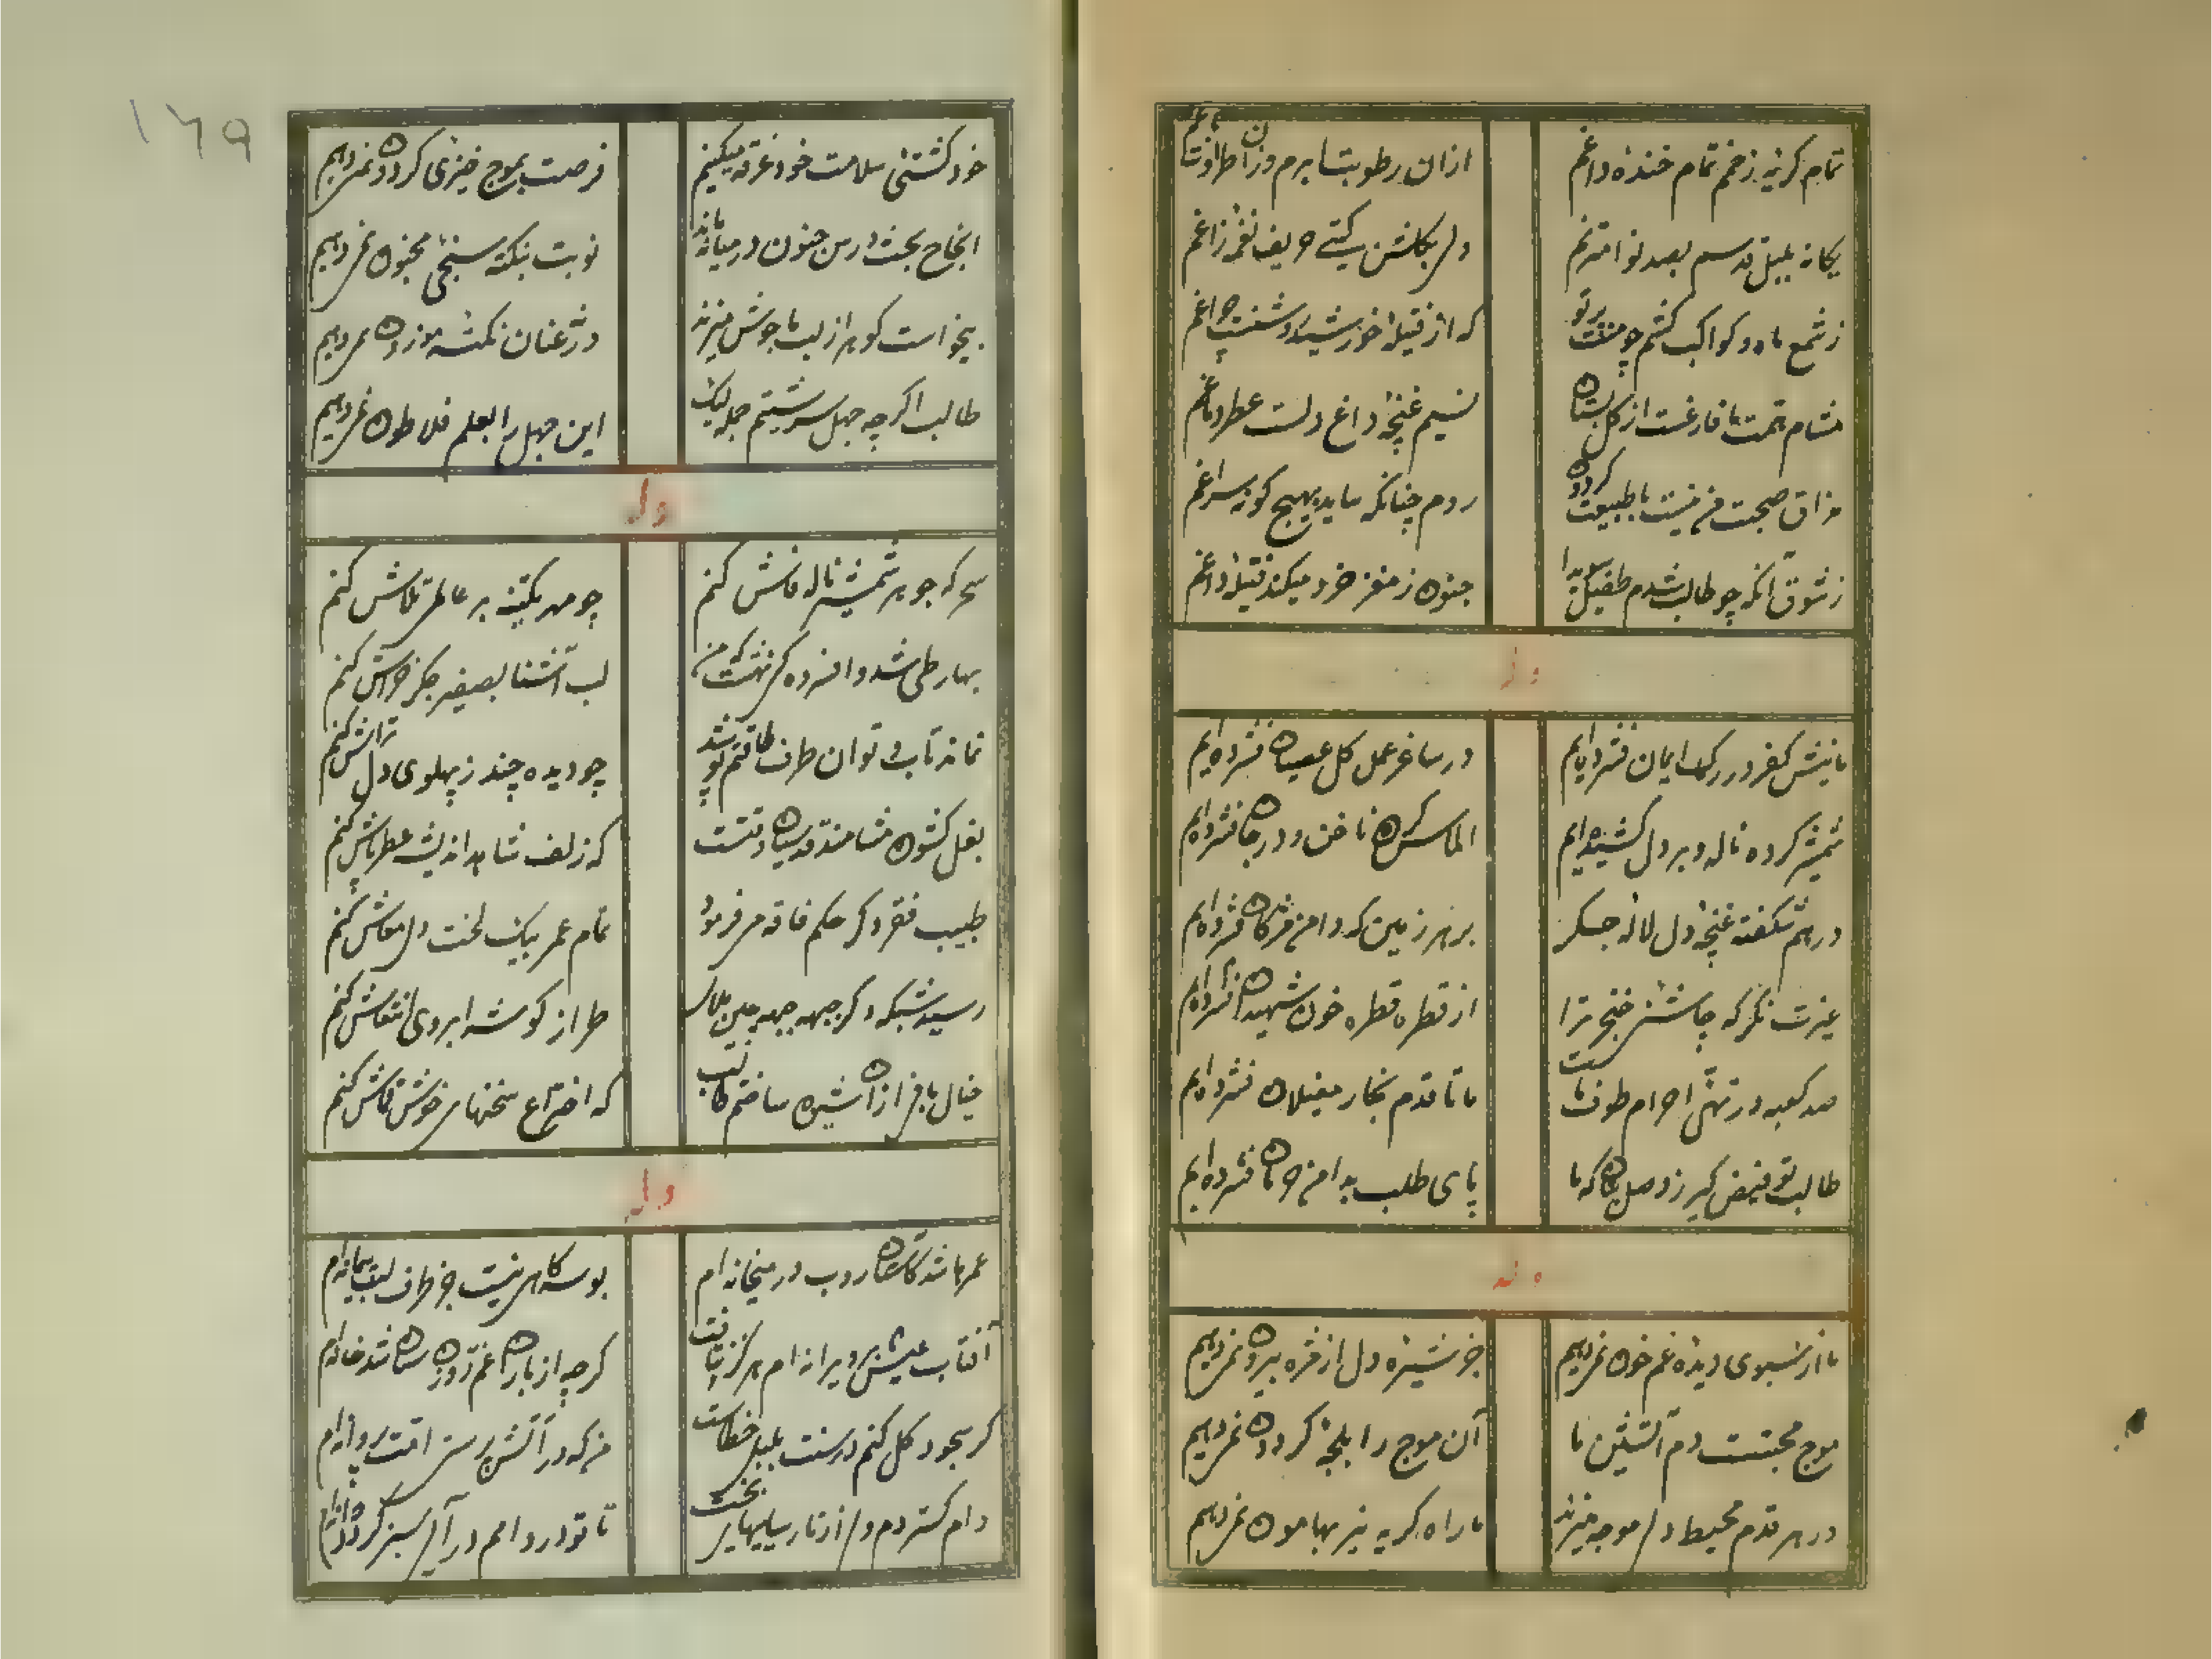 تمام گریه زخم تمام خنده داغم
ازان رطوبت بزم وزان طراوت باغم
یکانه بلبل قدسم بصد نوا مترنم
ولی بکلشن کیتی حریف نغمه زاغم
ز شمع ماه و کواکب کشم چو منت پرتو
که از فتیله خورشید روشنست چراغم
مشام همت ما فارغست از کل بستان
نسیم غنچه داغ دلست عطر دماغم
مذاق صحبت من نیست با طبیعت کردون
روم چنانکه نیابد بهیچ کونه سراغم
ز شوق آنکه چو طالب شدم طفیلی سودا
جنون ز مغز خرد میکند فتیله داغم
وله
ما نیش کفر در رک ایمان فشرده ایم
در ساغر عمل کل عصیان فشرده ایم
شمشیر کرده ناله و بر دل کشیده ایم
الماس کرده ناخن و در جان فشرده ایم
درهم شکفته غنچه دل لاله جکر
بر هر زمین که دامن مژکان فشرده ایم
غیرت نکر که چاشنی خنجر ترا
از قطره قطره خون شهیدان فشرده ایم
صد کعبه در تهی احرام طوف ماست
ما تا قدم بخار مغیلان فشرده ایم
طالب تو فیض کیر ز وصل بتان که ما
پای طلب بدامن حرمان فشرده ایم
وله
ما از سبوی دیده غم خون نمیدهیم
جز شیره دل از مژه بیرون نمیدهیم
موج محبتست دم آتشین ما
آن موج را بلجه کردون نمیدهیم
در هر قدم محیط دلی موجه میزند
ما راه کریه نیز بهامون نمیدهیم
۱۶۹
خود کشتی سلامت خود غرقه میکنیم
فرصت بموج خیزی کردون نمیدهیم
اینجا چو بحث درس جنون در میانه ماند
نوبت بنکته سنجی مجنون نمیدهیم
بیخواست کوهر از لب ما جوش میزند
درّ عنان نکته موزون نمیدهیم
طالب اکرچه جهل سرشتیم جمله لیک
این جهل را بعلم فلاطون نمیدهیم
وله
سحر که جوهر شمشیر ناله فاش کنم
چو مهر یکتنه بر عالمی تلاش کنم
بهار طی شد و افسرده کی نهشت که من
لب آشنا بصفیر جکر خراش کنم
نماند تاب و توان طرف طاقتم نو شد
چو دیده چند ز پهلوی دل تراش کنم
بغل کشون مشامند قدسیان وقتست
که زلف شاهد اندیشه عطرپاش کنم
طبیب فقر و کر حکم فاقه می فرمود
تمام عمر بیک لخت دل معاش کنم
رسید شبکه دکر جبهه جبهه چین ملال
طراز کوشه ابروی انتعاش کنم
خیال بافی ازان شیوه ساختم طالب
که اختراع سخنهای خوش قماش کنم
وله
عمرها شد کاستان روب در میخانه ام
بوسه کاهی نیست جز طرف لب پیمانه ام
آفتاب عیش بر ویرانه ام هرکز نتافت
کرچه از باران غم روزن شد خانه ام
کر سجود کل کنم در سنت بلبل خطاست
من که در آتش پرستی امت پروانه ام
دام کستردم ولی از نارسایهای بخت
تا تو در دامم در آیی سبز کردد دانه ام